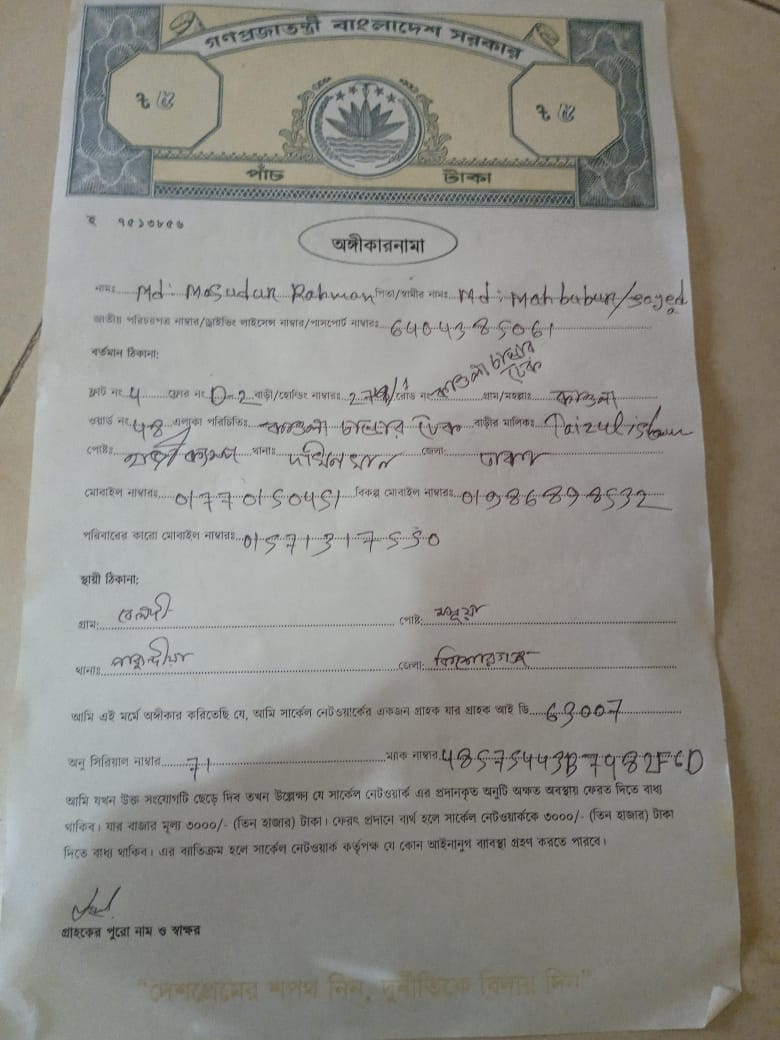 গণপ্রজাতন্ত্রী বাংলাদেশ সরকার
৳ ৫ ৳ ৫
পাঁচ টাকা
অঙ্গীকারনামা
নামঃ Md: Masudur Rahman পিতা/স্বামীর নামঃ Md: Mahbubur/sayed
জাতীয় পরিচয়পত্র নাম্বার/ড্রাইভিং লাইসেন্স নাম্বার/পাসপোর্ট নাম্বারঃ 6404385061
বর্তমান ঠিকানা:
ফ্লাট নং 4 ফ্লোর নং D-2 বাড়ী/হোল্ডিং নাম্বারঃ রোড নং কাওলা গ্রাম/মহল্লাঃ কাওলা
ওয়ার্ড নং 48 এলাকা পরিচিতিঃ কাওলা টেক বাড়ীর মালিকঃ
পোষ্টঃ হাজী ক্যাম্প থানাঃ দক্ষিনখান জেলাঃ ঢাকা
মোবাইল নাম্বারঃ 01770150451 বিকল্প মোবাইল নাম্বারঃ 01986898532
পরিবারের কারো মোবাইল নাম্বারঃ 01571317550
স্থায়ী ঠিকানা:
গ্রাম: পোষ্ট:
থানাঃ পাকুন্দীয়া জেলা: কিশোরগঞ্জ
আমি এই মর্মে অঙ্গীকার করিতেছি যে, আমি সার্কেল নেটওয়ার্কের একজন গ্রাহক যার গ্রাহক আই ডি 63007
অনু সিরিয়াল নাম্বার 71 ম্যাক নাম্বার 48575443B7982F6D
আমি যখন উক্ত সংযোগটি ছেড়ে দিব তখন উল্লেক্ষ্য যে সার্কেল নেটওয়ার্ক এর প্রদানকৃত অনুটি অক্ষত অবস্থায় ফেরত দিতে বাধ্য
থাকিব। যার বাজার মূল্য ৩০০০/- (তিন হাজার) টাকা। ফেরৎ প্রদানে ব্যর্থ হলে সার্কেল নেটওয়ার্ককে ৩০০০/- (তিন হাজার) টাকা
দিতে বাধ্য থাকিব। এর ব্যাতিক্রম হলে সার্কেল নেটওয়ার্ক কর্তৃপক্ষ যে কোন আইনানুগ ব্যাবস্থা গ্রহণ করতে পারবে।
গ্রাহকের পুরো নাম ও স্বাক্ষর
"দেশপ্রেমের শপথ নিন, দুর্নীতিকে বিদায় দিন"